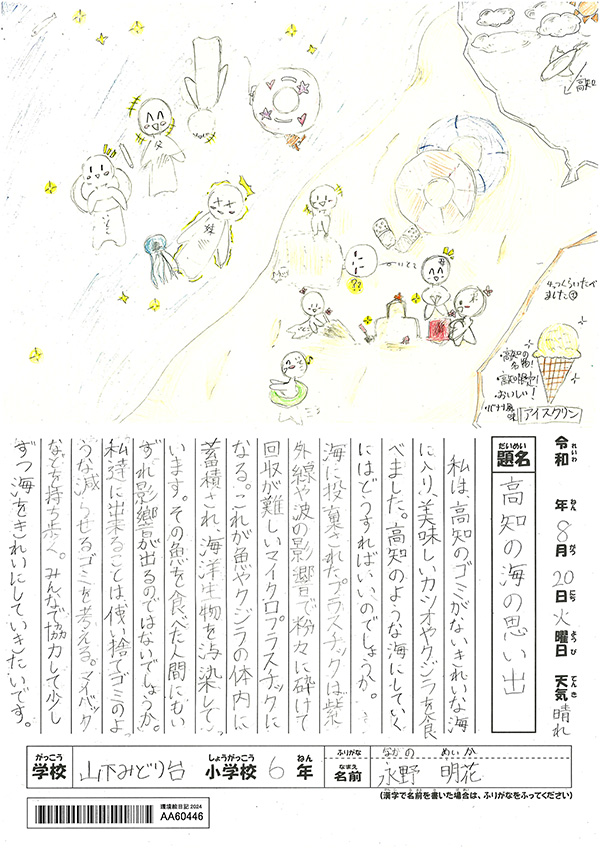 高知
4つくらいたべ
ました
・高知の
名物!
・高知限定!
・おいしい!
バナナ風
味
アイスクリン
父
妹
母
??
令和 年 8月 20日 火曜日 天気 晴れ
れいわ ねん がつ にち ようび てんき
だいめい
題名
高知の海の思い出
私は、高知のゴミがないきれいな海
に入り、美味しいカツオやクジラを食
べました。高知のような海にしていく
にはどうすればいいのでしょうか。
海に投棄されたプラスチックは紫
外線や波の影響で粉々に砕けて
回収が難しいマイクロプラスチックに
なる。これが魚やクジラの体内に
蓄積され、海洋生物を汚染して
います。その魚を食べた人間にもい
ずれ影響が出るのではないでしょうか。
私達に出来ることは使い捨てゴミのよ
うな減らせるゴミを考える。マイバック
などを持ち歩く。みんなで協力して少し
ずつ海をきれいにしていきたいです。
がっこう しょうがっこう ねん
学校 山下みどり台 小学校 6年
ふりがな ながの めいか
なまえ
名前 永野 明花
(漢字で名前を書いた場合は、ふりがなをふってください)
環境絵日記 2024
AA60446